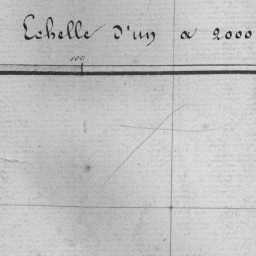 Echelle d'un a 2000
100